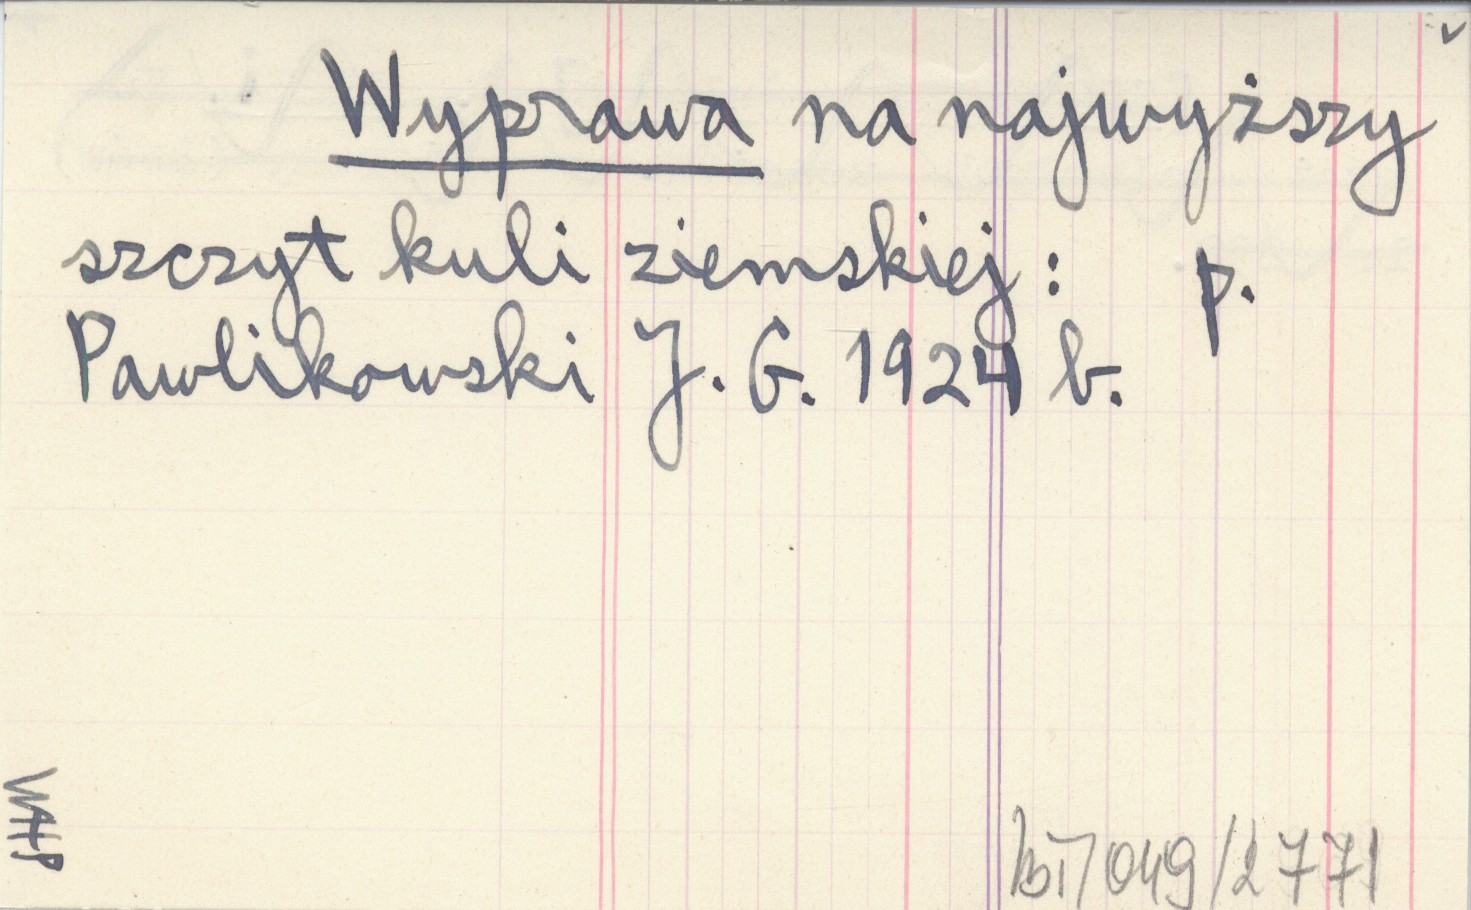 Wyprawa na najwyższy
szczyt kuli ziemskiej: p.
Pawlikowski J. G. 1924 b.
WAHP
bi/049/2771